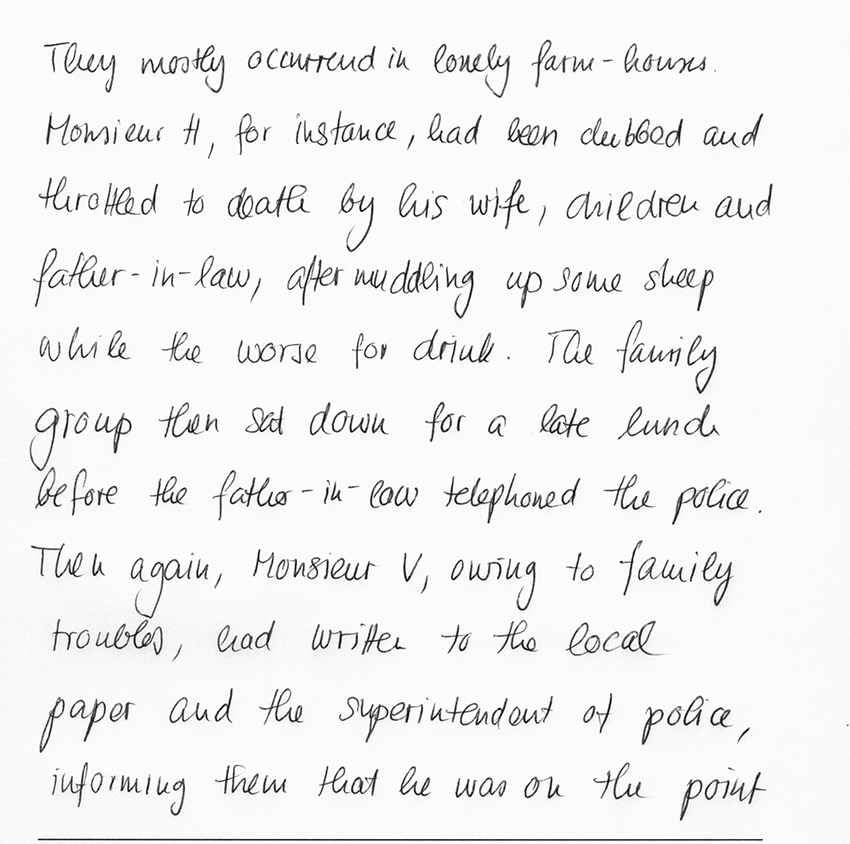 They mostly occurrend in lonely farm-houses.
Monsieur H, for instance, had been clubbed and
throttled to death by his wife, children and
father-in-law, after muddling up some sheep
while the worse for drink. The family
group then sat down for a late lunch
before the father-in-law telephoned the police.
Then again, Monsieur V, owing to family
troubles, had written to the local
paper and the superintendent of police,
informing them that he was on the point